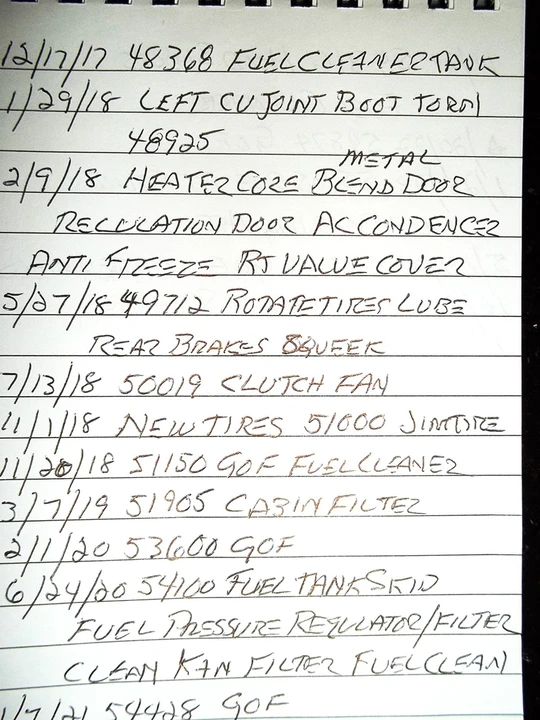 12/17/17 48368 FUEL CLEANER TANK
1/29/18 LEFT CV JOINT BOOT TORN
48925
METAL
2/9/18 HEATER CORE BLEND DOOR
RECULATION DOOR AC CONDENCER
ANTI FREEZE RT VALUE COVER
5/27/18 49712 ROTATE TIRES LUBE
REAR BRAKES SQUEEK
7/13/18 50019 CLUTCH FAN
11/1/18 NEW TIRES 51000 JIM TIRE
11/20/18 51150 GOF FUEL CLEANER
3/7/19 51905 CABIN FILTER
2/1/20 53600 GOF
6/24/20 54100 FUEL TANK SKID
FUEL PRESSURE REGULATOR/FILTER
CLEAN K+N FILTER FUEL CLEAN
1/7/21 54428 GOF